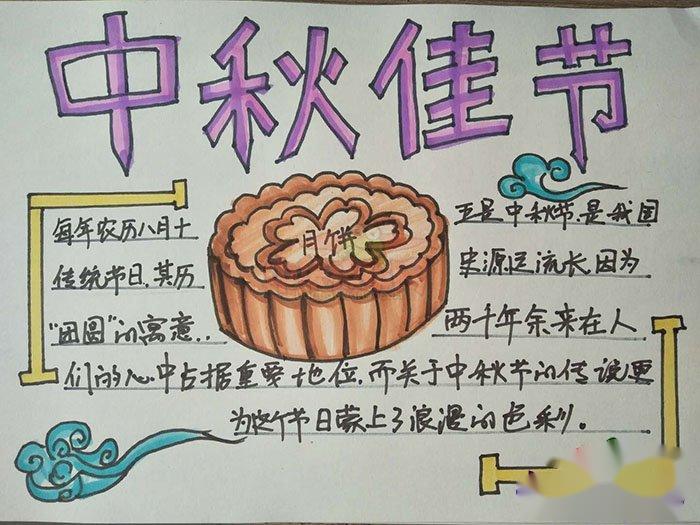 中秋佳节
月饼
每年农历八月十 五是中秋节是我国
传统节日,其历 史源远流长,因为
"团圆"的寓意,, 两千年余来在人
们的心中占据重要地位,而关于中秋节的传说更
为这个节日蒙上了浪漫的色彩。